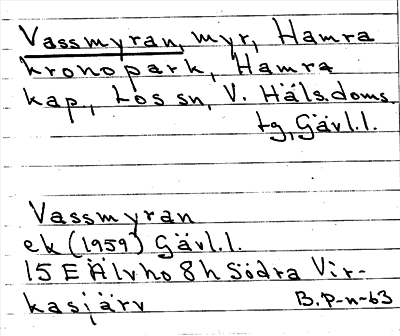 Vassmyran, myr, Hamra
kronopark, Hamra
kap., Los sn, V. Häls.doms.
tg, Gävl.l.
Vassmyran
ek (1959) Gävl.l.
15 E Älvho 8h Södra Vir-
kasjärv B.P-n-63